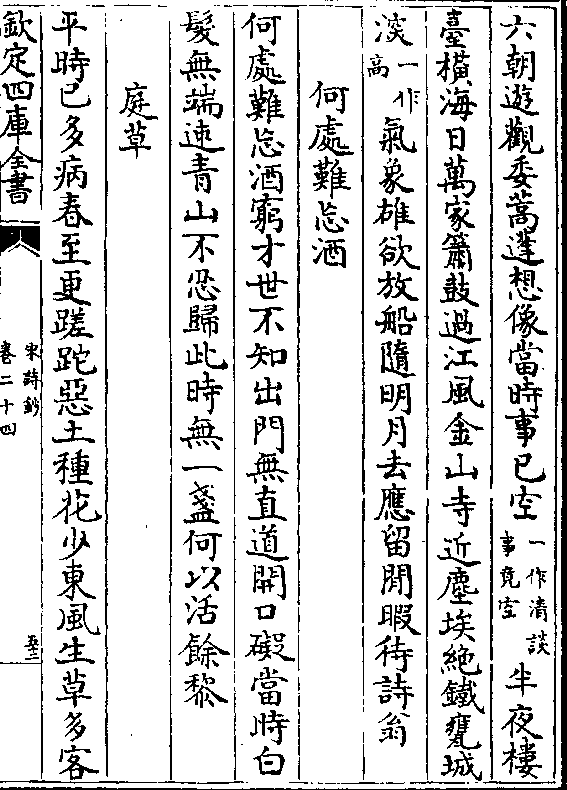 六朝遊觀委蒿蓬想像當時事已空一作清談事竟空半夜樓
臺橫海日萬家簫鼓過江風金山寺近塵埃絶鐵甕城
深一作高氣象雄欲放船隨明月去應留閒暇待詩翁
何處難忘酒
何處難忘酒窮才世不知出門無直道開口礙當時白
髮無端速青山不忍歸此時無一盞何以活餘黎
庭草
平時已多病春至更蹉跎惡土種花少東風生草多客
欽定四庫全書
宋詩鈔
卷二十四